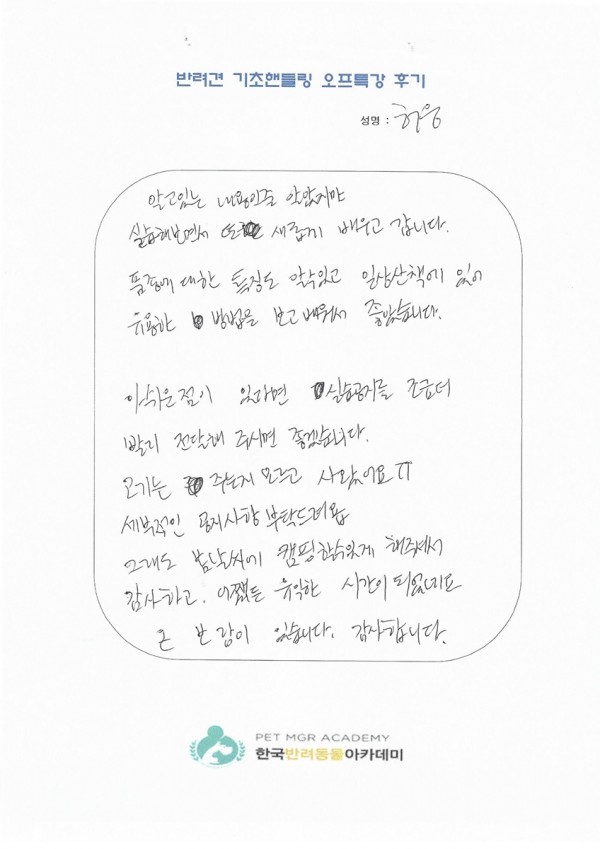 반려견 기초핸들링 오프특강 후기
성명 : 허웅
알고있는 내용인줄 알았지만
실습해보면서 또 새롭게 배우고 갑니다.
품종에 대한 특징도 알수있고 일상산책에 있어
유용한 방법을 보고 배워서 좋았습니다.
아쉬운점이 있다면 실습공지를 조금더
빨리 전달해 주시면 좋겠습니다.
고기는 주는지 모르고 사왔어요ㅠ
세부적인 공지사항 부탁드려욥
그래도 봄날씨에 캠핑할수있게 해주셔서
감사하고. 어쨌든 유익한 시간이 되었네요
큰 보람이 있습니다. 감사합니다.
PET MGR ACADEMY
한국반려동물아카데미